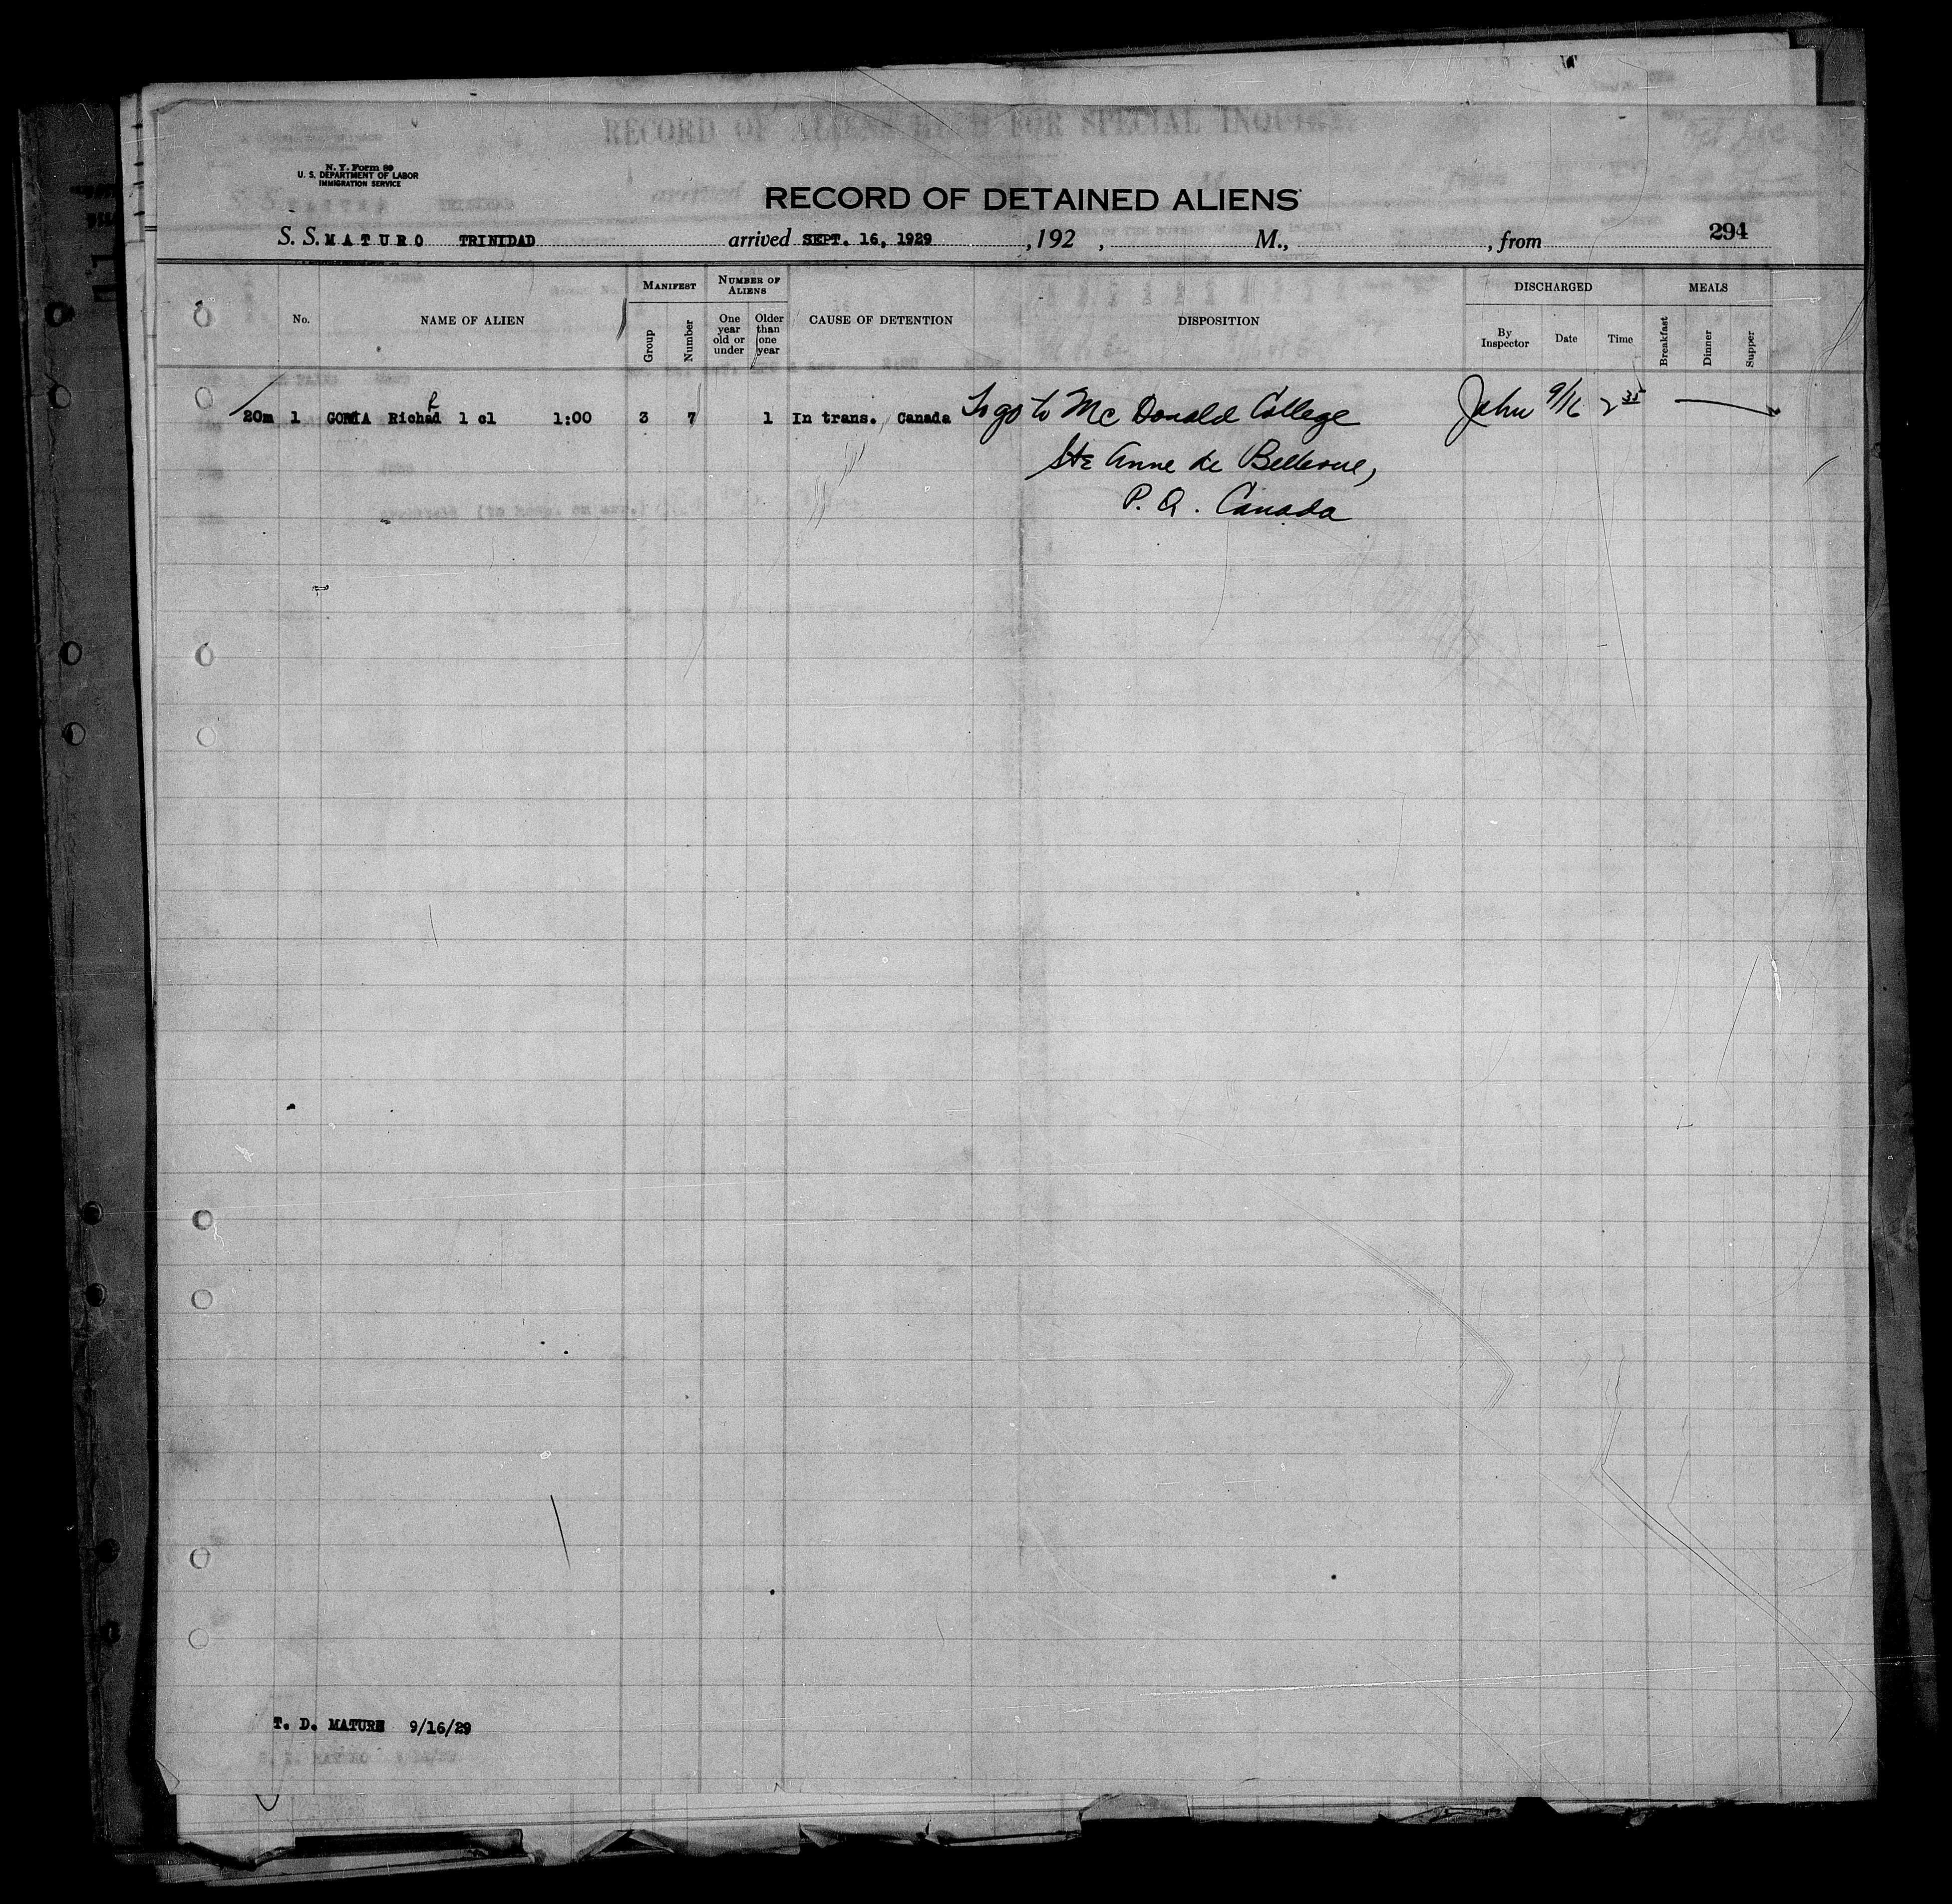 RECORD OF ALIENS HELD FOR SPECIAL INQUIRY
N. Y. Form 89
U. S. DEPARTMENT OF LABOR
IMMIGRATION SERVICE
RECORD OF DETAINED ALIENS
S. S. MATURO TRINIDAD arrived SEPT. 16, 1929 , 192 , M., , from 294
No. NAME OF ALIEN MANIFEST Group Number NUMBER OF ALIENS One year old or under Older than one year CAUSE OF DETENTION DISPOSITION DISCHARGED By Inspector Date Time MEALS Breakfast Dinner Supper
20m 1 Richad 1 cl 1:00 3 7 1 In trans. Canada To go to Mc Donald College John 9/16 2 35
Ste Anne de Bellevue,
P. Q. Canada
T. D. MATURE 9/16/29